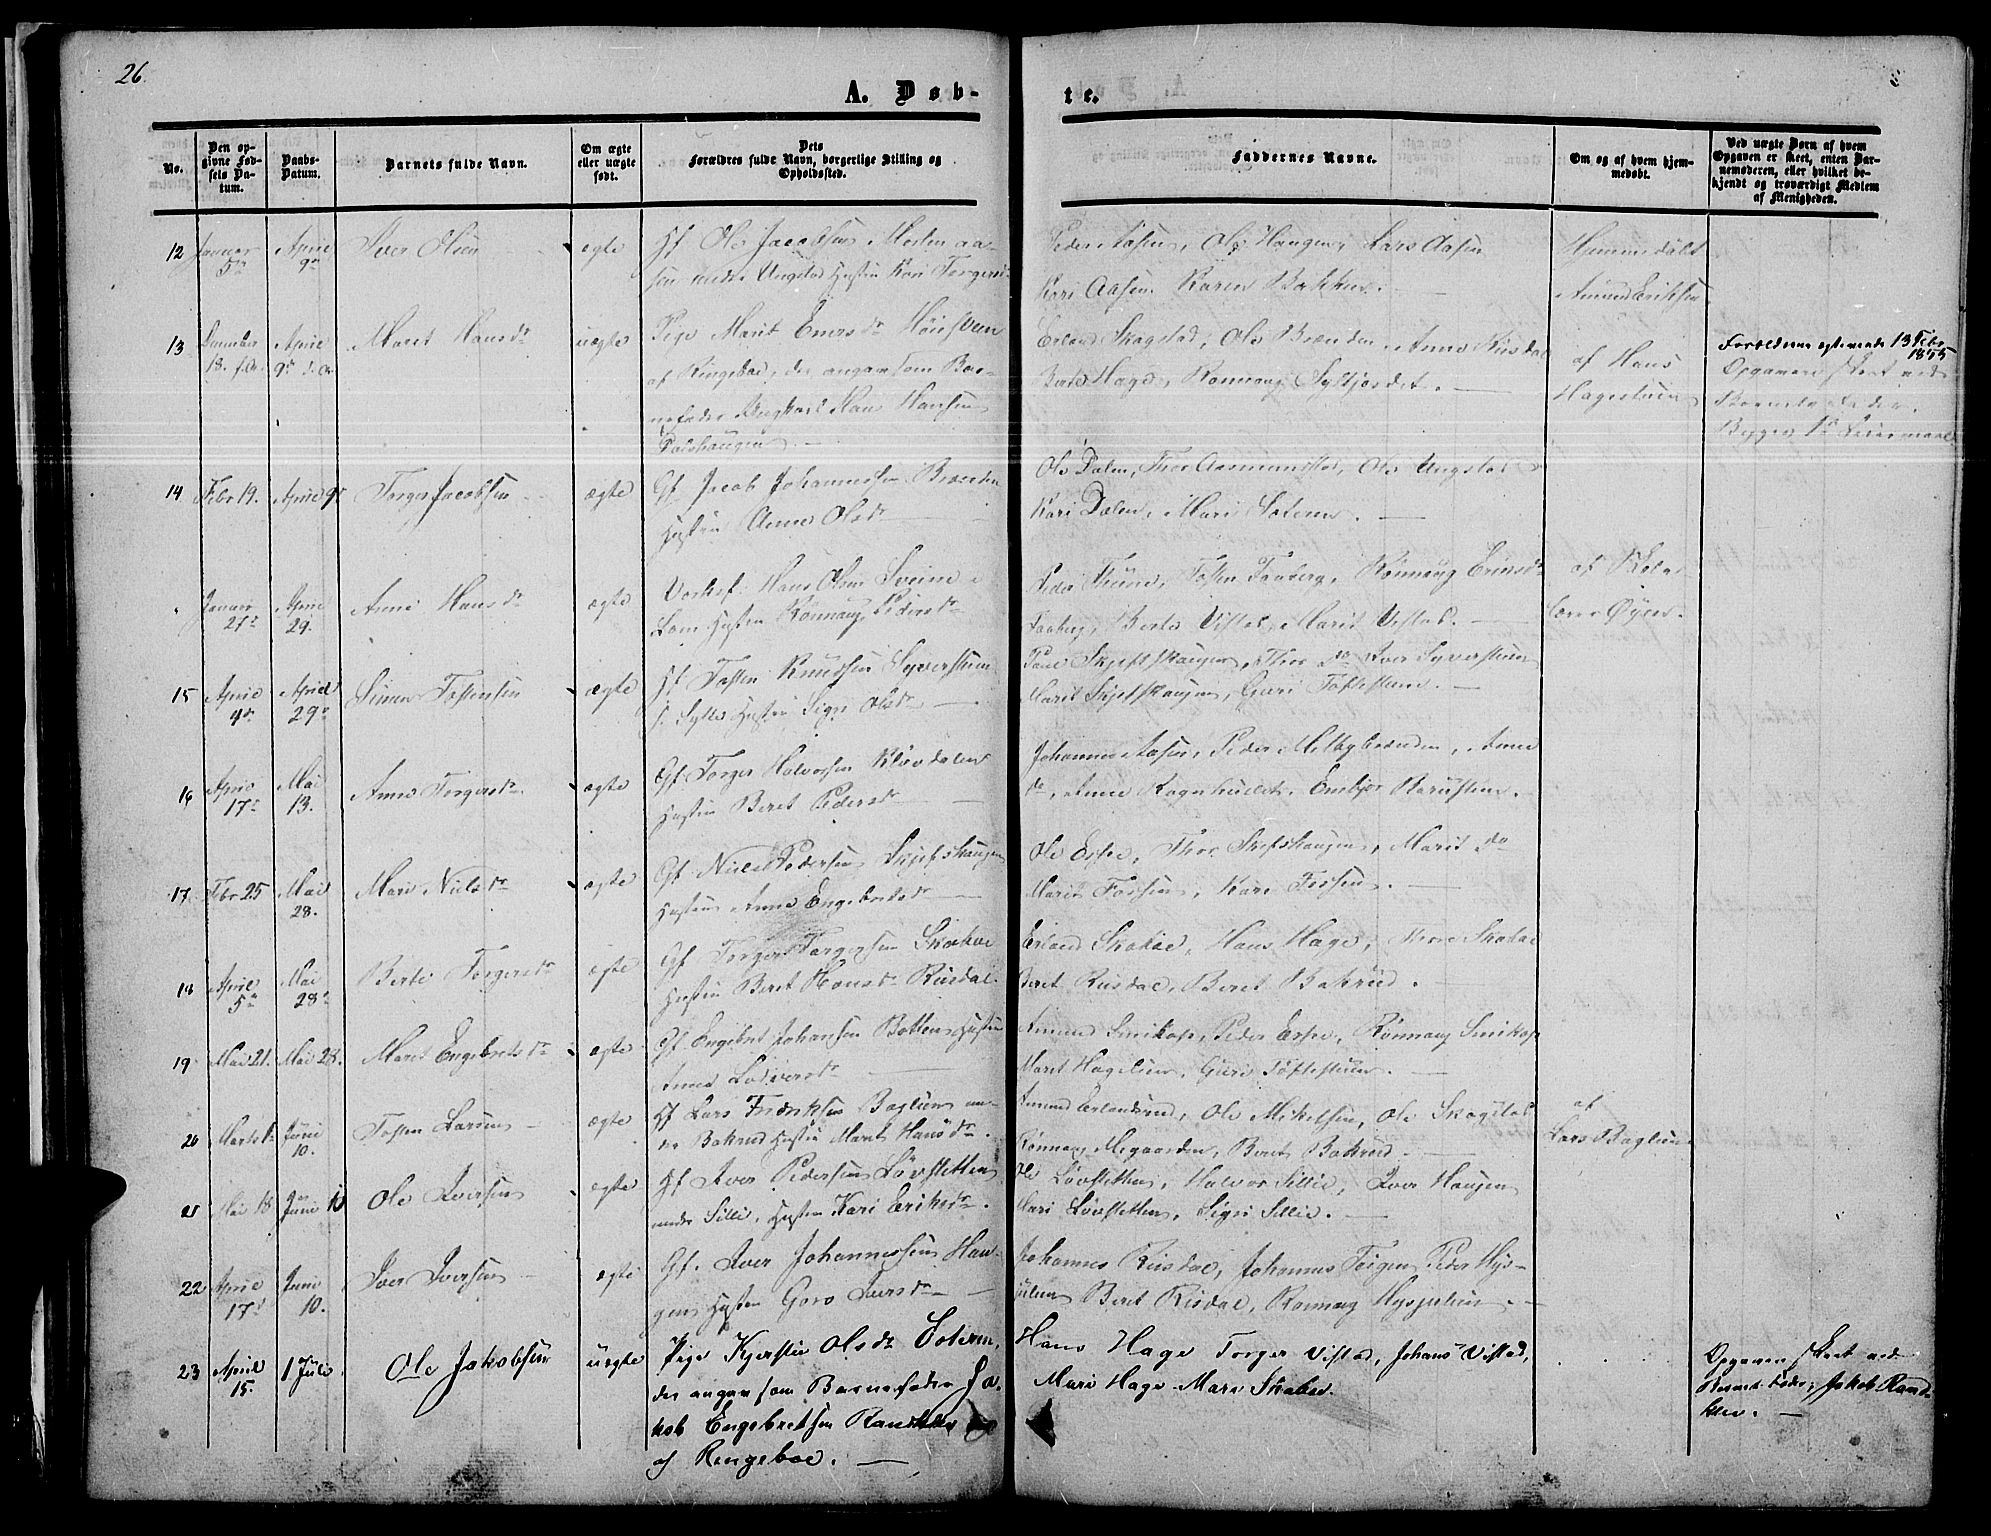 26.
A. Døb-
te.
No.
Den op-
givne Fød-
sels Da-
tum.
Daabs-
Datum.
Barnets fulde Navn.
Om ægte
eller uægte
født.
Dets
Forældres fulde Navn, borgerlige Stilling og
Opholdssted.
Faddernes Navne.
Om og af hvem hjem-
medøbt.
Ved uægte Børn af hvem
Opgaven er skeet, enten Bar-
nemoderen, eller hvilket be-
kjendt og troværdigt Medlem
af Menigheden.
12 Januar 5te April 9de Iver Olsen ægte Gf. Ole Jacobsen Morten aa-
sen under Ungstad Hustru Kari Torgersd.
Peder Aasen, Ole Haugen, Lars Aasen
Kari Aasen Karen Bakken.
Hjemmedøbt
Amund Eriksen
13 December 18. f. A. April 9de d. A. Maret Hansdr uægte Pige Marit Enersdr Høistuen
af Ringeboe, der angav som Bar-
nefader Ungkarl Hans Hansen
Dalshaugen
Erland Skogstad, Ole Brænden, Anne Rusdal
Berte Hage, Rønnaug Syltjordet.
af Hans
Hagestuen
Forældrene egteviede 13 Febr
1855
Opgaven skeet ved
Barnets Fader.
Begges 1ste Leiermaal
14 Febr 19. April 9de Torger Jacobsen ægte Gf. Jacob Johannessen Brænden
Hustru Anne Olsdr
Ole Dalen, Thor Aasmundstad, Ole Ungstad
Kari Dalen, Mari Soteren.
Januar 27de April 29. Anne Hansdr ægte Hans Olsen Sveine i
Lom Hustru Rønnaug Pedersdr
Peder Thune, Tosten Faaberg, Rønnaug Erinsdr
Faaberg, Berte Vistad, Marit Vistad.
af Skole-
lærer Øyen.
15 April 4de April 29de Simen Tostensen ægte Gf. Tosten Knudsen Syverstuen
p. Sylte Hustru Sigri Olsdr
Paul Skjefshaugen, Thor do Iver Syverstuen
Marit Skjefshaugen, Guri Toftestuen.
16 April 17de Mai 13. Anne Torgersdr ægte Gf. Torger Halvorsen Kløvdalen
Hustru Beret Pedersdr
Johannes Aasen, Peder Melbybrænden, Anne
do, Anne Ragnhuset, Embjør Rarustuen.
17 Febr 25 Mai 28. Mari Nielsdr ægte Gf. Niels Pedersen Skjefshaugen
Hustru Anne Engebretsdr
Ole Espe, Thor Skefshaugen, Marit do
Marit Fossen, Kari Fossen.
18 April 5te Mai 28de Berte Torgersdr ægte Gf. Torger Torgersen Skaboe
Hustru Beret Hansdr Rusdal.
Erland Skaboe, Hans Hage, Thore Skaboe
Beret Rusdal, Beret Bakrud.
19 Mai 21. Mai 28. Maret Engebretsdr ægte Gf. Engebret Johansen Botten Hustru
Anne Lodversdr
Amund Smikop, Peder Espe, Rønnaug Smikop
Maret Hagelien, Guri Toftestuen.
20 Marts Juni 10. Tosten Larsen ægte Gf. Lars Fredriksen Baglien un-
der Bakrud Hustru Maret Hansdr.
Amund Erlandsrud, Ole Mikelsen, Ole Skogstad
Rønnaug Megaarden, Beret Bakrud.
af
Lars Baglien
21 Mai 18 Juni 10 Ole Iversen ægte Gf. Iver Pedersen Løvsletten
under Sillie, Hustru Kari Eriksdr.
Ole Løvsletten, Halvor Sillie, Iver Haugen
Mari Løvsletten, Sigri Sillie.
22 April 17de Juni 10. Iver Iversen ægte Gf. Iver Johannessen Hau-
gen Hustru Goro Iversdr
Johannes Rusdal, Johannes Teigen Peder Hys-
julien Beret Rusdal, Rønnaug Hysjulien.
23 April 15. 1 Juli Ole Jakobsen uægte Pige Kjersti Olsdr Soteren,
der angav som Barnefader Ja-
kob Engebretsen Randklev
af Ringeboe.
Hans Hage Torger Vistad, Johans Vistad,
Mari Hage Mari Skaboe.
Opgaven skeet ved
Barnets Fader, Jakob Rand-
klev.